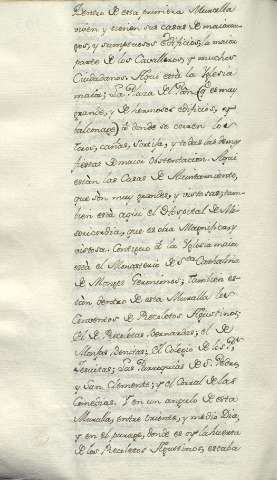 Dentro de esta primera Muralla
viven y tienen sus casas de maioraz-
gos, y sumptuosos edificios, la maior
parte de los Cavalleros, y muchos
Ciudadanos. Aqui está la Iglesia
maior; La Plaza del Pan (q̃ es muy
grande, y de hermosos edificios, y
) â donde se corren los
Toros, cañas, Sortija, y todas las demas
fiestas de maior obstentacion. Aqui
están las Casas de Aiuntamiento,
que son muy grandes, y vistosas; tam-
bien está aqui el Hospital de Mi-
sericordia, que es obra Magnifica, y
vistosa. Contiguo â la Iglesia maior
está el Monasterio de Sta. Cathalina
de Monges Geronimos; Tambien es-
tan dentro de esta Muralla los
Conventos de Recoletos Agustinos;
el de Recoletas Bernardas; el de
Monjas Benitas; el Colegio de los PP.
Jesuitas; Las Parroquias de Sn. Pedro,
y San Clemente; y el Corral de las
Comedias. Y en un angulo de esta
Muralla, entre oriente, y medio dia,
y en el parage, donde es oy la huerta
de los Recoletos Agustinos, estaba